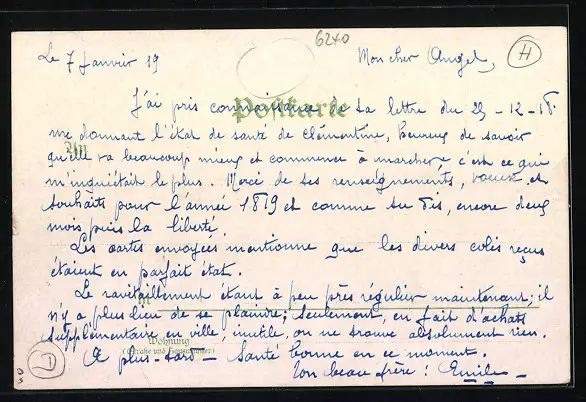 6240
Le 7 Janvier 19 Mon cher Angel, H
Postkarte
J'ai pris connaissance de ta lettre du 29-12-18
me donnant l'état de santé de Clémentine, heureux de savoir
An
qu'elle va beaucoup mieux et commence à marcher c'est ce qui
m'inquiétait le plus. Merci de tes renseignements, voeux et
souhaits pour l'année 1819 et comme tu dis, encore deux
mois puis la liberté.
Les cartes envoyées mentionne que les divers colis reçus
étaient en parfait état.
Le ravitaillement étant à peu près régulier maintenant; il
n'y a plus lieu de se plaindre; seulement, en fait d'achats
supplémentaire en ville, inutile, on ne trouve absolument rien.
Wohnung
(Straße und Hausnummer)
A plus-tard - Santé bonne en ce moment.
Ton beau frère : Emile -